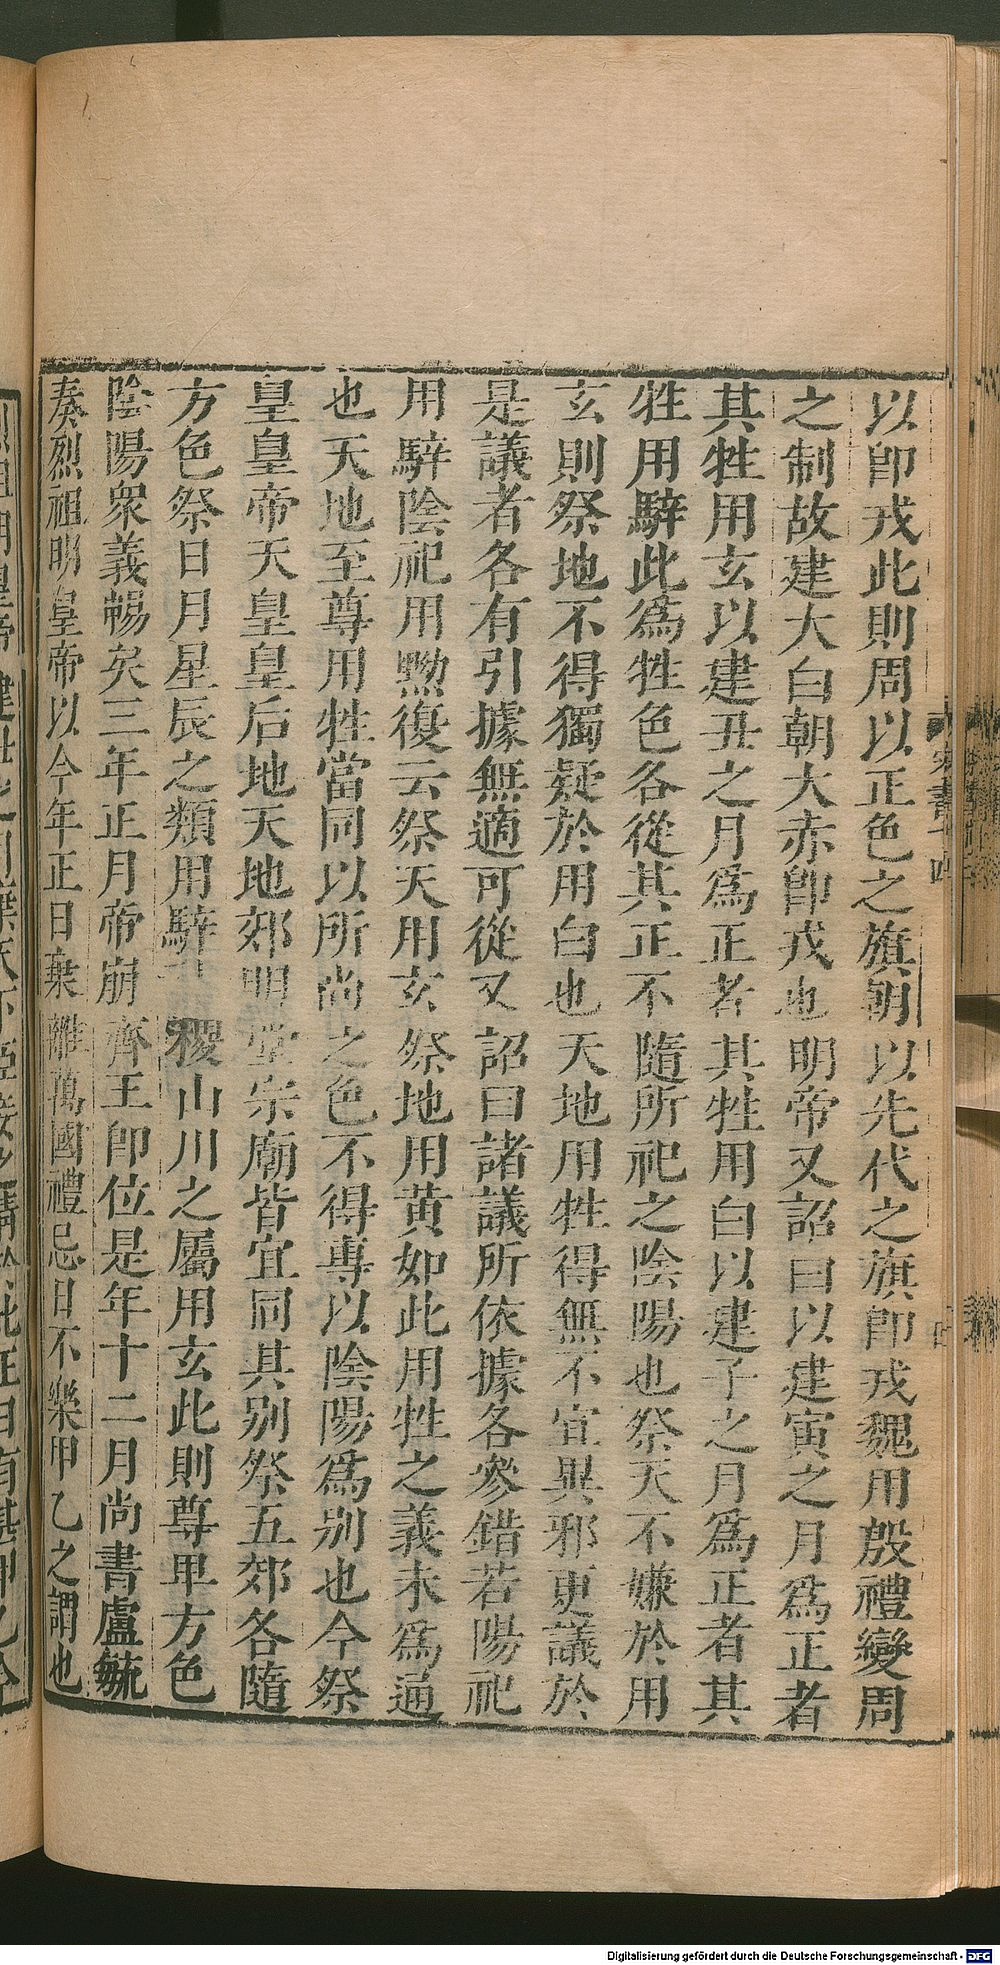 以即戎此則周以正色之旗朝以先代之旗即戎魏用殷禮變周
之制故建大白朝大赤即戎也明帝又詔曰以建寅之月爲正者
其牲用玄以建丑之月爲正者其牲用白以建子之月爲正者其
牲用騂此爲牲色各從其正不隨所祀之陰陽也祭天不嫌於用
玄則祭地不得獨疑於用白也天地用牲得無不宜異邪更議於
是議者各有引據無適可從又詔曰諸議所依據各參錯若陽祀
用騂陰祀用黝復云祭天用玄祭地用黃如此用牲之義未爲通
也天地至尊用牲當同以所尚之色不得專以陰陽爲別也今祭
皇皇帝天皇皇后地天地郊明堂宗廟皆宜同其別祭五郊各隨
方色祭日月星辰之類用騂 稷山川之屬用玄此則尊卑方色
陰陽衆義暢矣三年正月帝崩齊王即位是年十二月尚書盧毓
奏烈祖明皇帝以今年正日棄離萬國禮忌日不樂甲乙之謂也
宋書十四
Digitalisierung gefördert durch die Deutsche Forschungsgemeinschaft - DFG